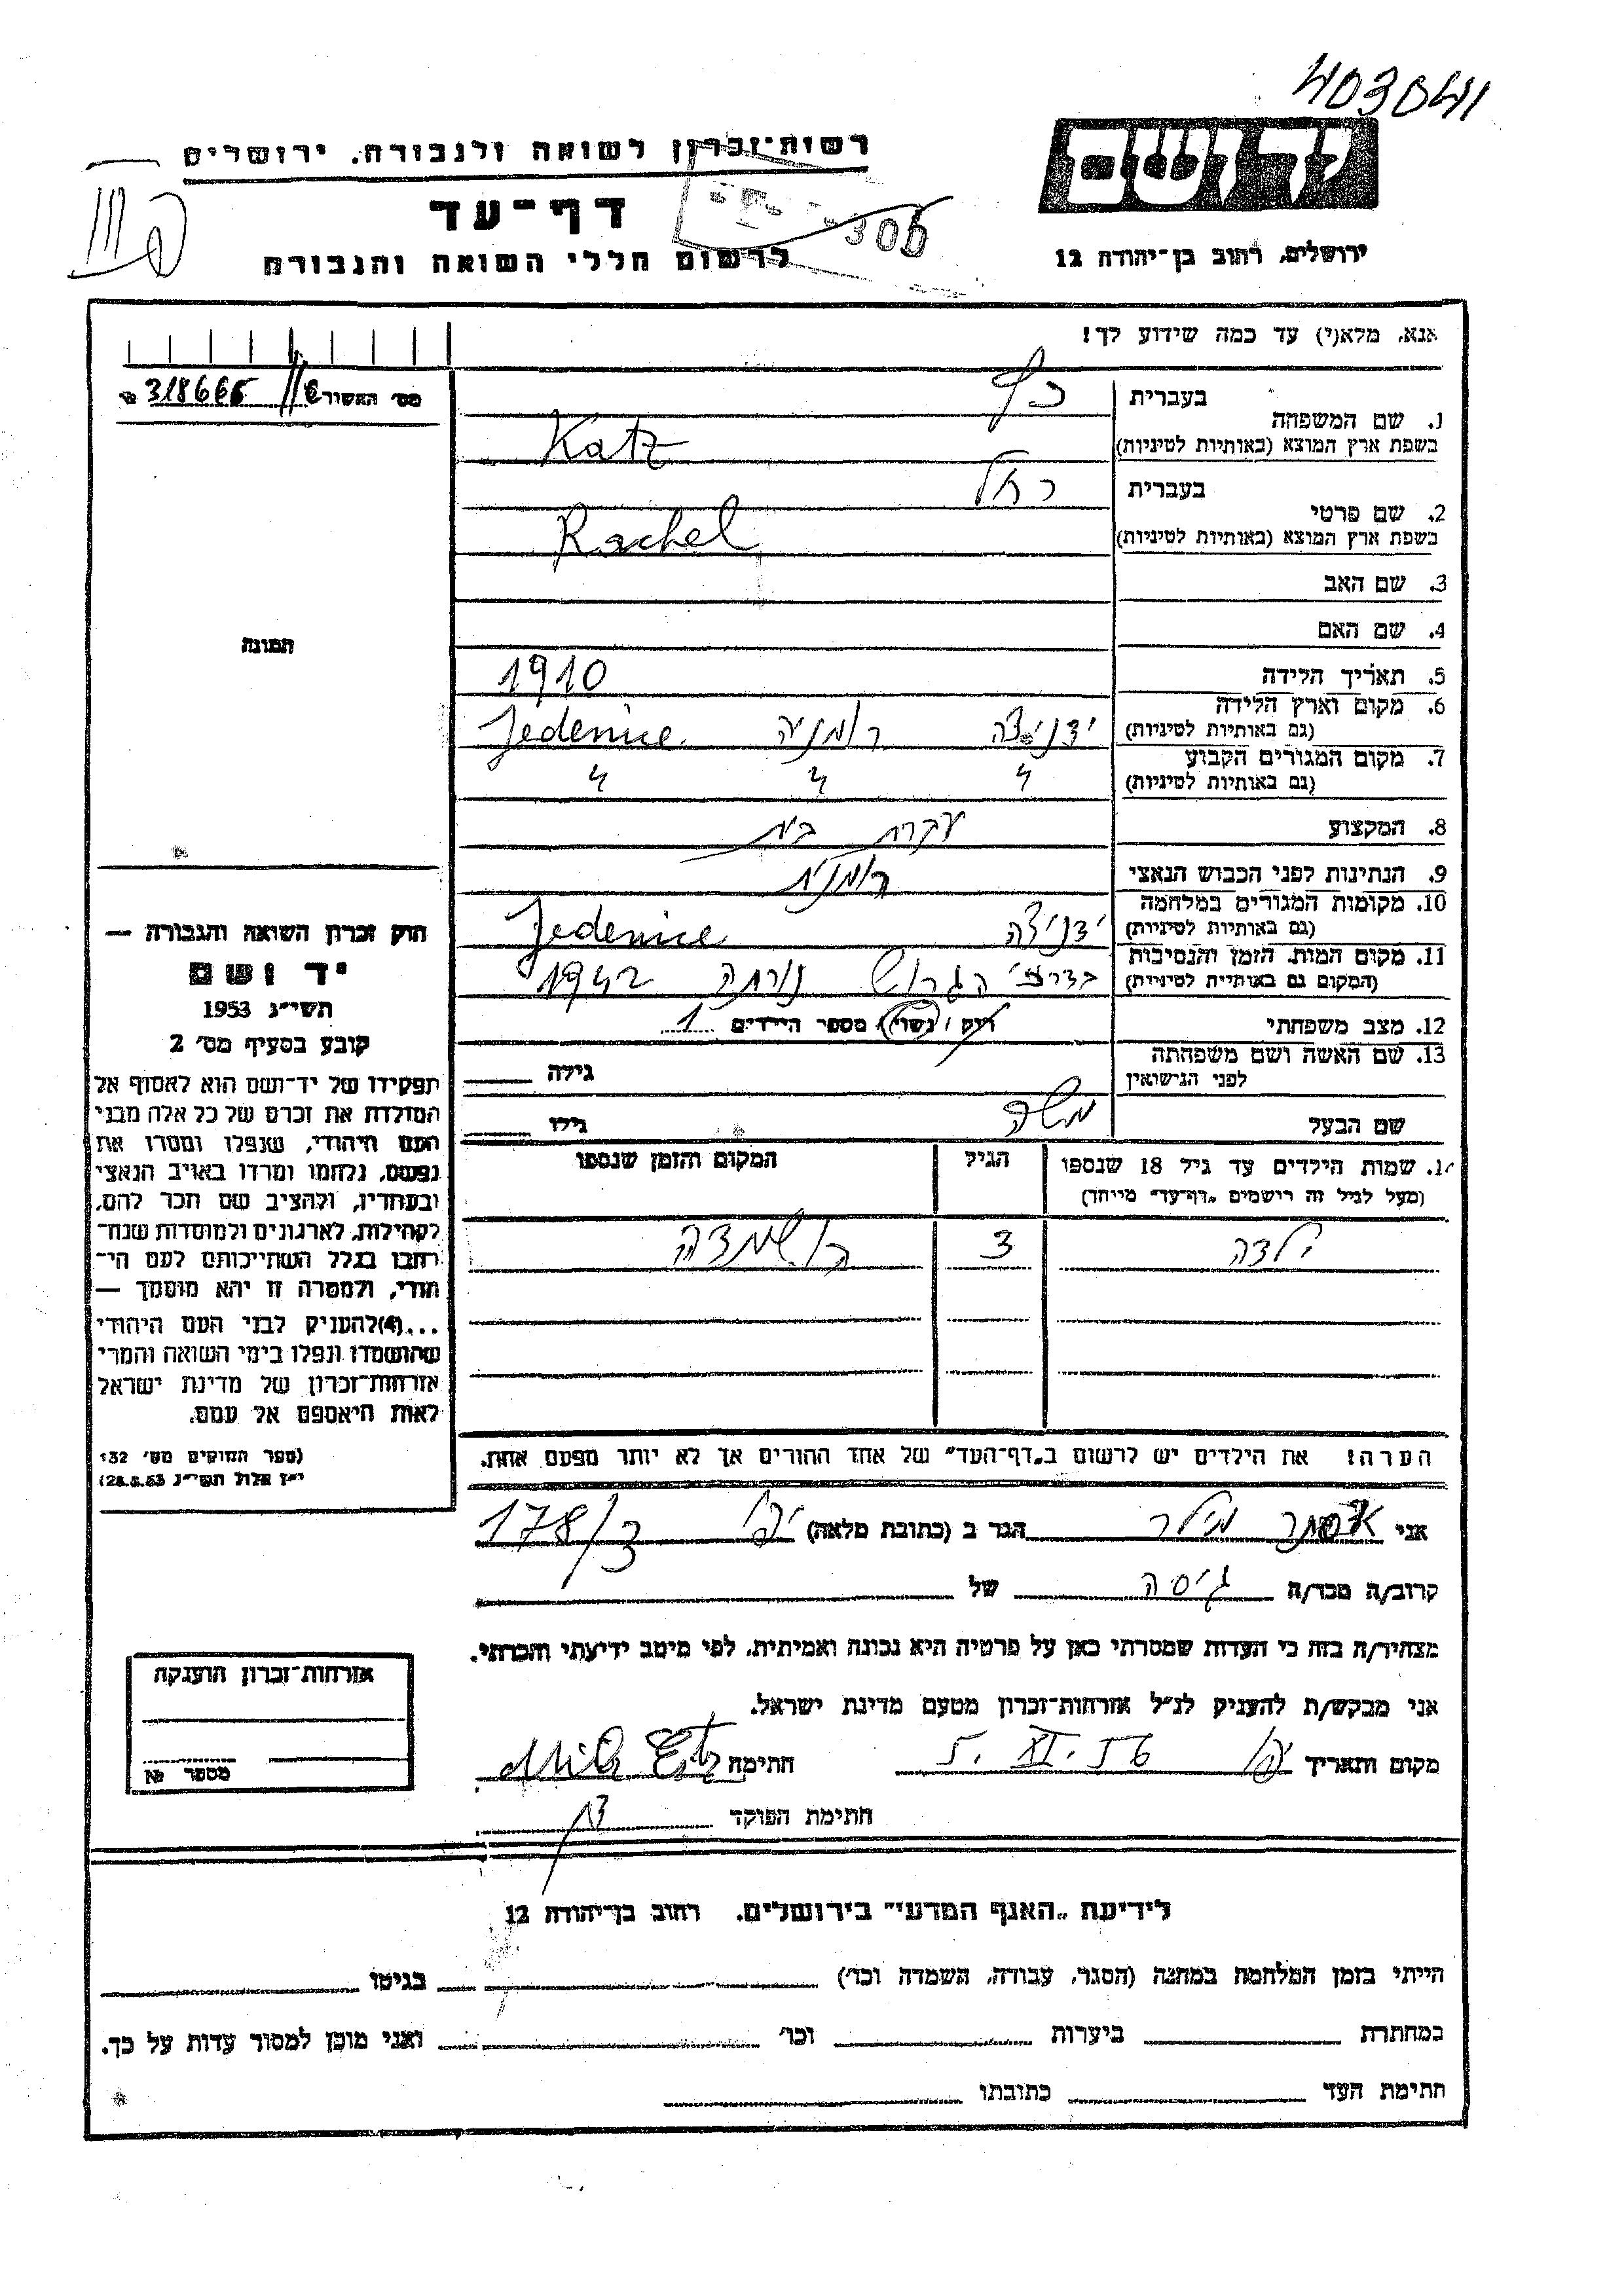 403041
רשות־זכרון לשואה ולגבורה, ירושלים
יד ושם
דף־עד
306
לרשום חללי השואה והגבורה
ירושלים, רחוב בן־יהודה 12
אנא, מלא(י) עד כמה שידוע לך!
מס׳ האשור 318666
1. שם המשפחה
בעברית כץ
בשפת ארץ המוצא (באותיות לטיניות) Katz
2. שם פרטי
בעברית רחל
בשפת ארץ המוצא (באותיות לטיניות) Rachel
3. שם האב
4. שם האם
תמונה
5. תאריך הלידה 1910
6. מקום וארץ הלידה
(גם באותיות לטיניות) ידניצה רומניה Jedenice
7. מקום המגורים הקבוע
(גם באותיות לטיניות) " " "
8. המקצוע עקרת בית
9. הנתינות לפני הכבוש הנאצי רומנית
10. מקומות המגורים במלחמה
(גם באותיות לטיניות) ידניצה Jedenice
11. מקום המות, הזמן והנסיבות
(המקום גם באותיות לטיניות) הגרוש 1942
12. מצב משפחתי רוק / נשוי / מספר הילדים 1
13. שם האשה ושם משפחתה
לפני הנישואין גילה
שם הבעל משה גילו
14. שמות הילדים עד גיל 18 שנספו הגיל המקום והזמן שנספו
(מעל לגיל זה רושמים „דף־עד” מיוחד)
ילדה 3 הושמדה
הערה: את הילדים יש לרשום ב„דף־העד” של אחד ההורים אך לא יותר מפעם אחת.
חוק זכרון השואה והגבורה —
יד ושם
תשי״ג 1953
קובע בסעיף מס׳ 2
תפקידו של יד־ושם הוא לאסוף אל
המולדת את זכרם של כל אלה מבני
העם היהודי, שנפלו ומסרו את
נפשם, נלחמו ומרדו באויב הנאצי
ובעוזריו, ולהציב שם וזכר להם,
לקהילות, לארגונים ולמוסדות שנח־
רבו בגלל השתייכותם לעם הי־
הודי, ולמטרה זו יהא מוסמך —
...(4) להעניק לבני העם היהודי
שהושמדו ונפלו בימי השואה והמרי
אזרחות־זכרון של מדינת ישראל
לאות היאספם אל עמם.
(ספר החוקים מס׳ 132
י״ז אלול תשי״ג 28.8.53)
אני אסתר מילר הגר ב (כתובת מלאה) יפו 178/3
קרוב/ה מכר/ה גיסה של
מצהיר/ה בזה כי העדות שמסרתי כאן על פרטיה היא נכונה ואמיתית, לפי מיטב ידיעתי והכרתי.
אני מבקש/ת להעניק לנ״ל אזרחות־זכרון מטעם מדינת ישראל.
מקום ותאריך יפו 5. XI. 56 חתימה
חתימת הפוקד
אזרחות־זכרון הוענקה
מספר №
לידיעת „האגף המדעי” בירושלים, רחוב בן־יהודה 12
הייתי בזמן המלחמה במחנה (הסגר, עבודה, השמדה וכו׳) בגיטו
במחתרת ביערות וכו׳ ואני מוכן למסור עדות על כך.
חתימת העד כתובתו